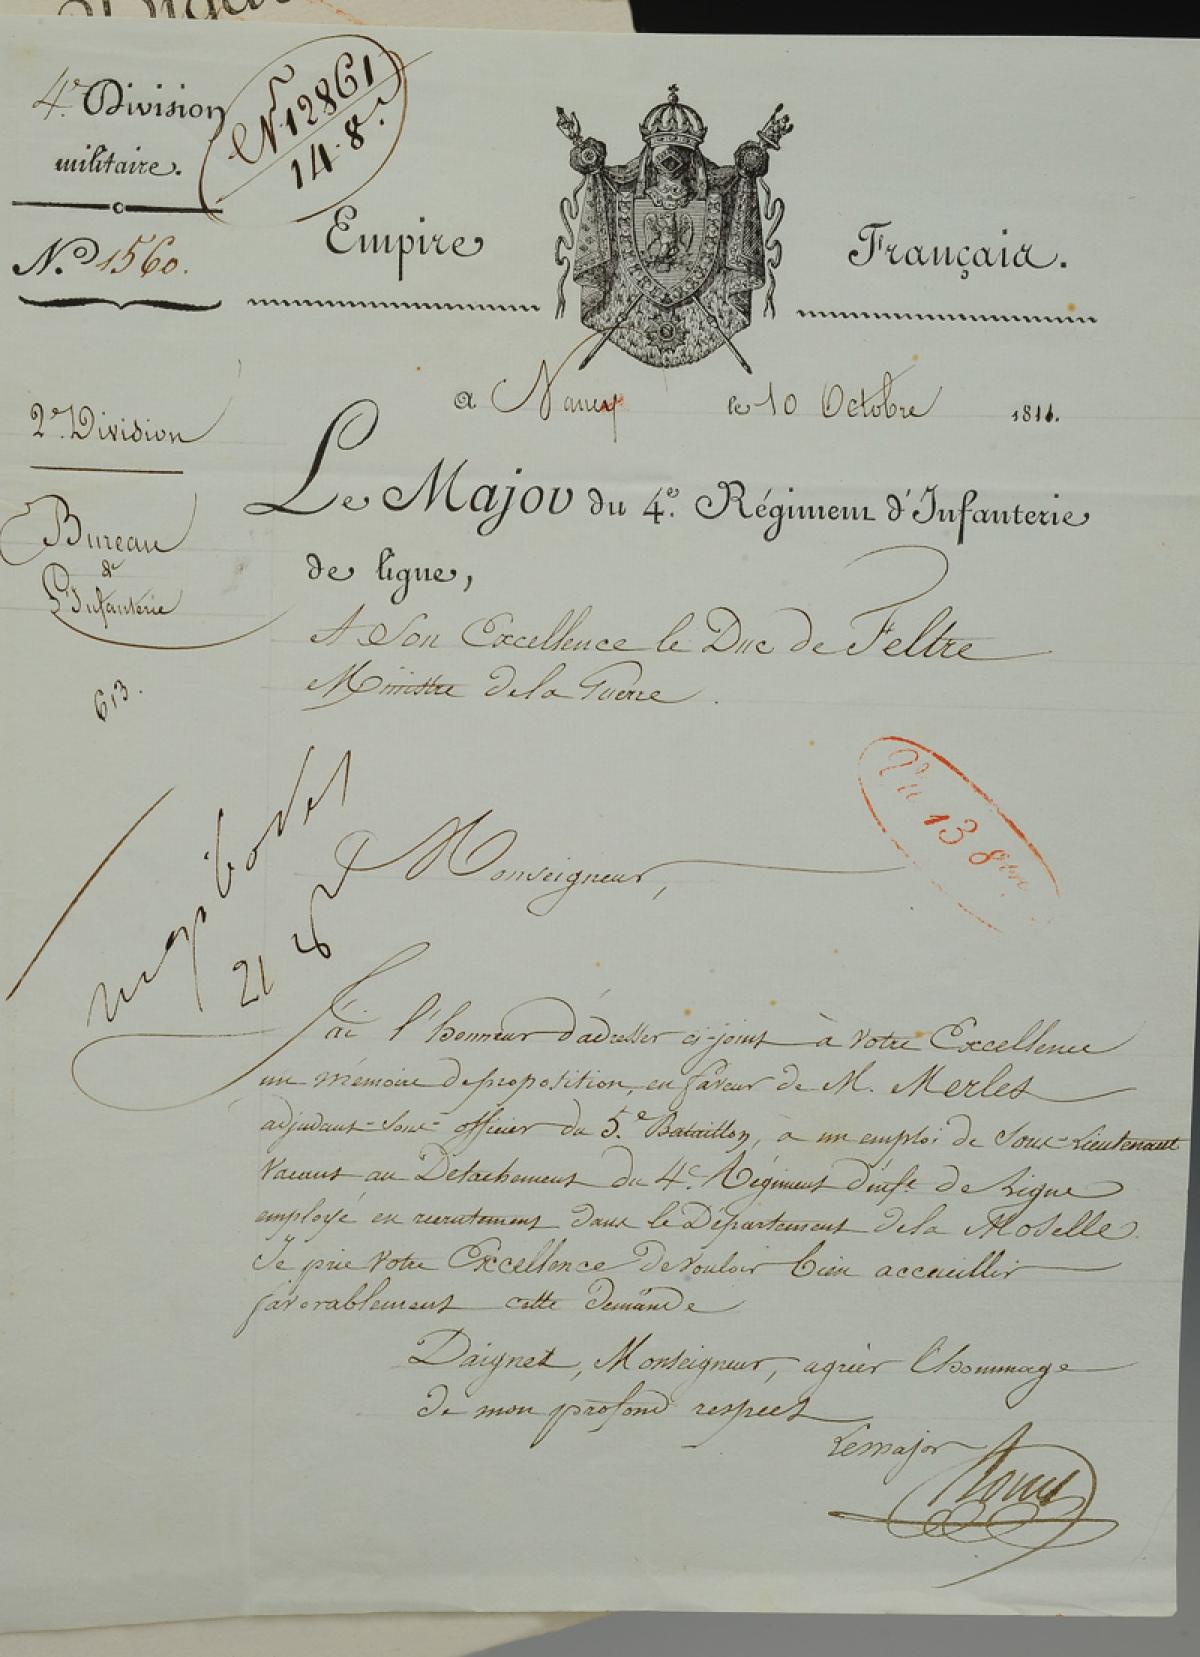 4e. Division
militaire.
N.o 1560.
No 12861
14-8.
Empire Français.
a Nancy le 10 Octobre 1811.
2e. Division
Bureau
de
L'Infanterie
613.
Le Major du 4e. Régiment d'Infanterie
de ligne,
A Son Excellence le Duc de Feltre
Ministre de la Guerre.
Vu 13 8bre
21 8
Monseigneur,
J'ai l'honneur d'adresser ci-joint à votre Excellence
un mémoire de proposition, en faveur de M. Merlet
adjudant-sous-officier du 5.e Bataillon, à un emploi de Sous-Lieutenant
Vacant au Détachement du 4e. Régiment d'infie. de Ligne
employé en recrutement dans le Département de la Moselle.
Je prie votre Excellence de vouloir bien accueillir
favorablement cette demande
Daignez, Monseigneur, agréer l'hommage
de mon profond respect
Le major